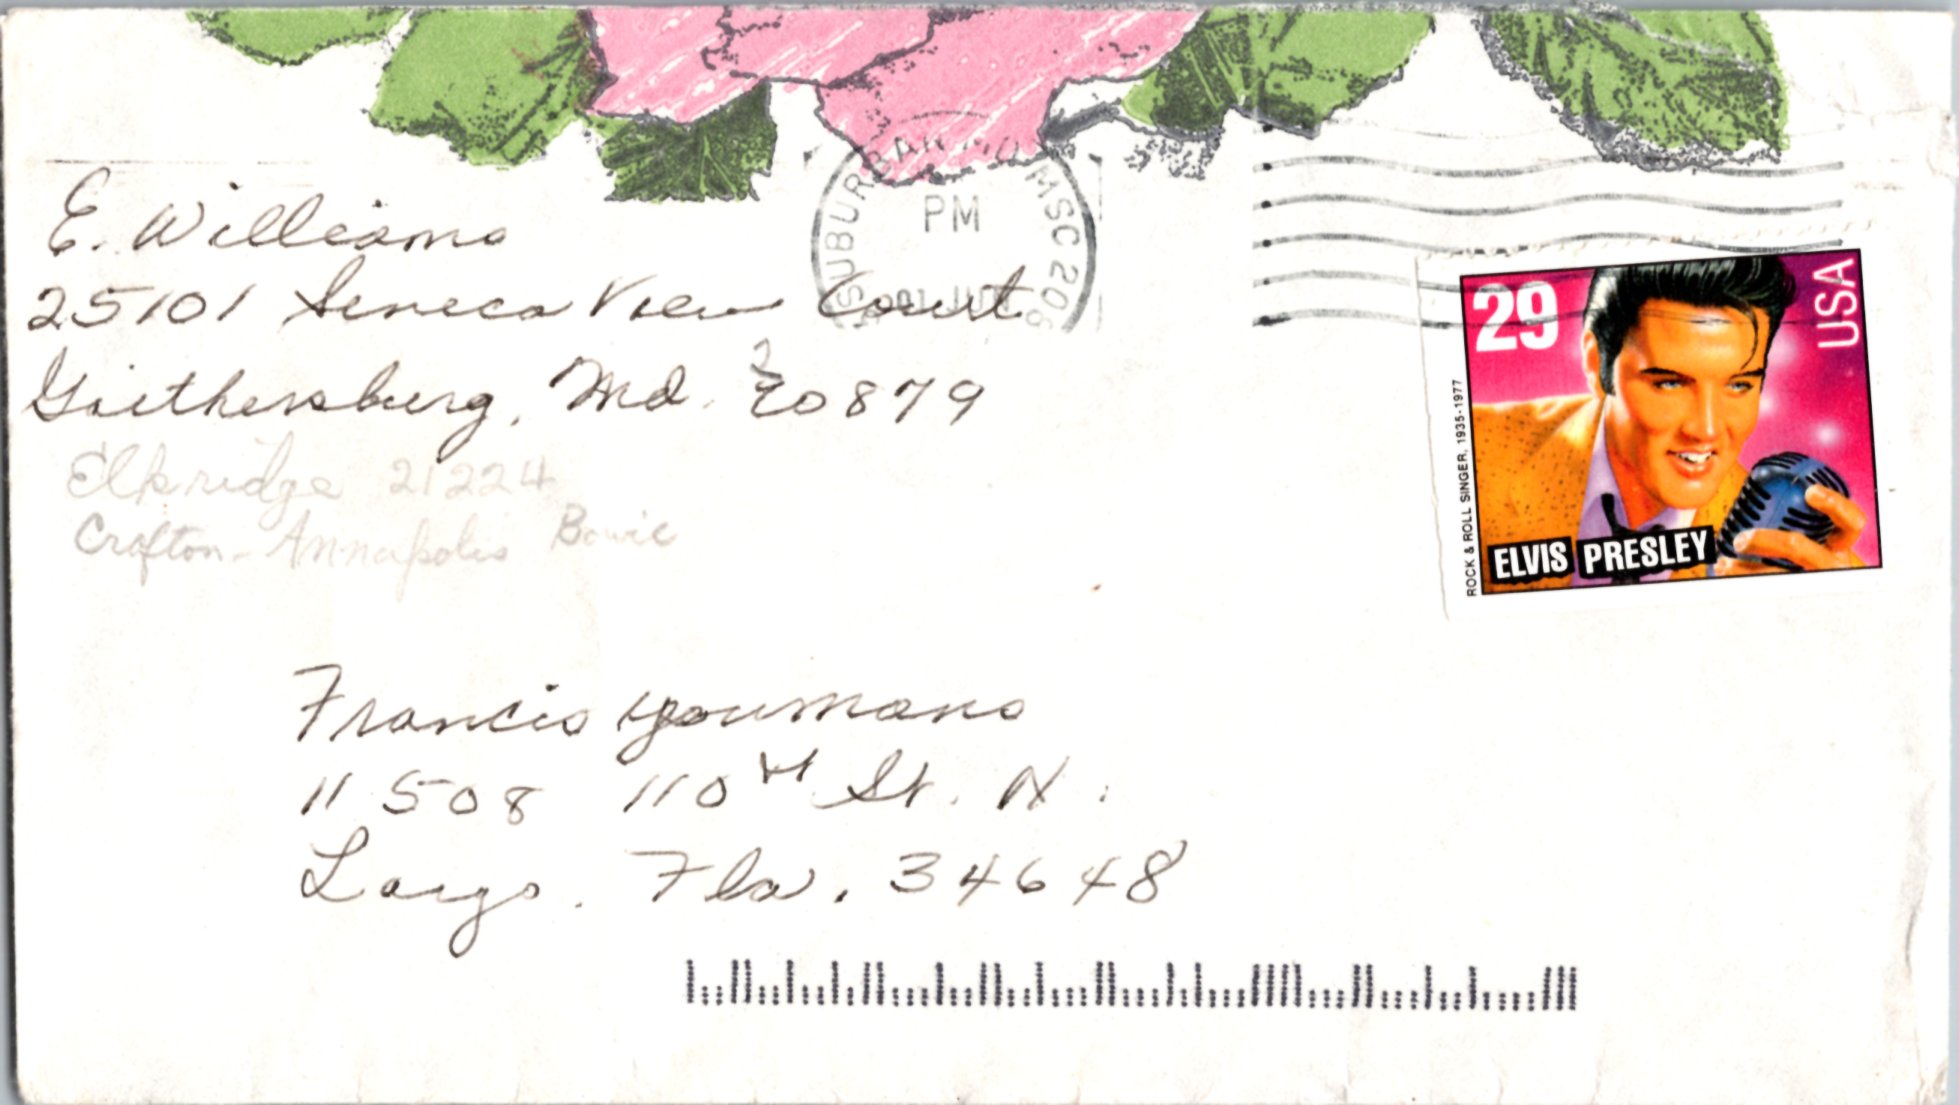 E. Williams
25101 Seneca View Court
Gaithersburg, Md. 20879
Elkridge 21224
Crafton - Annapolis Bowie
SUBURBAN MD MSC 208
PM
29
USA
ROCK & ROLL SINGER, 1935-1977
ELVIS PRESLEY
Francis Youmans
11508 110th St. N.
Largo. Fla. 34648